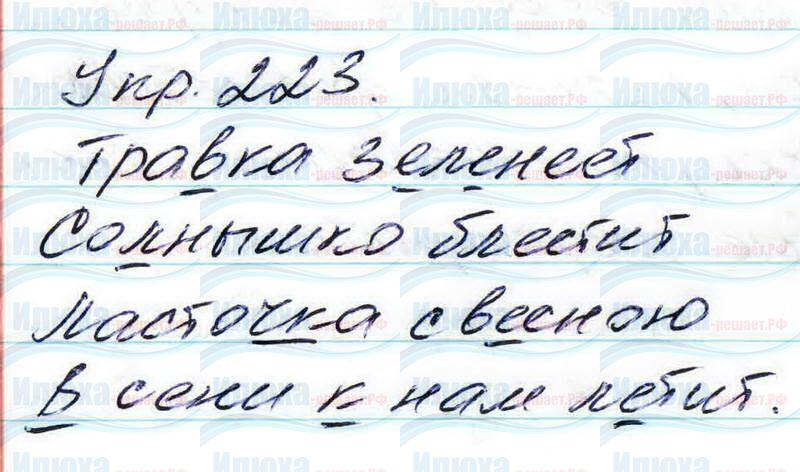 Упр. 223.
Травка зеленеет
Солнышко блестит
Ласточка с весною
В сени к нам летит.